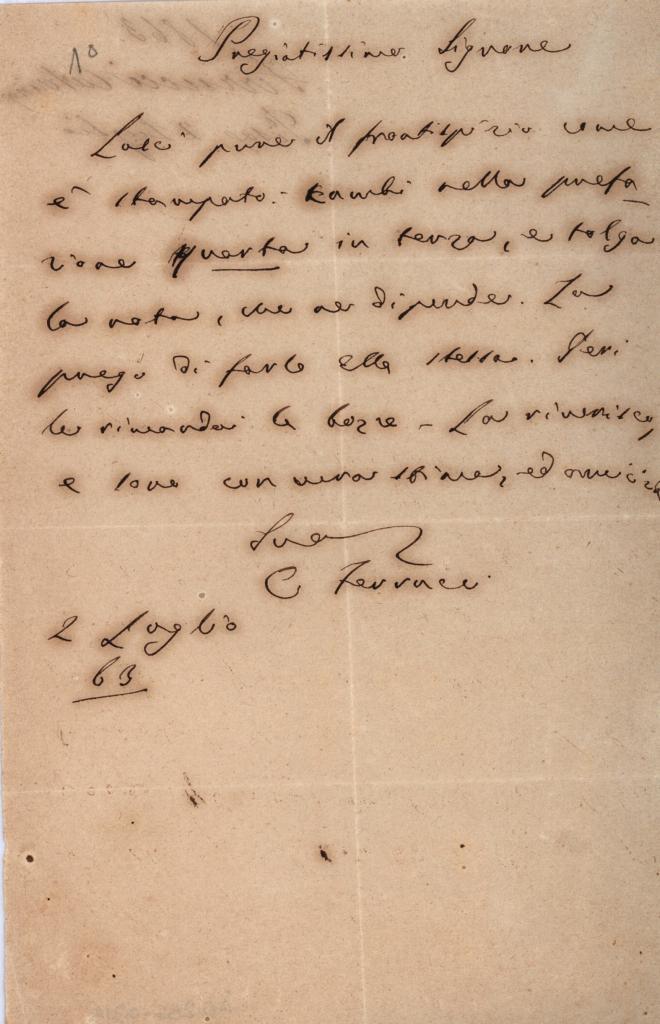 1°
Pregiatissimo Signore
Lasci pure il frontispizio come
è stampato. Kambi nella prefa-
zione quarta in terza, e tolga
la nota, che ne dipende. La
prego di farlo ella stessa. Jeri
le rimandai le bozze - La riverisco,
e sono con vera stima, ed amicizia
Suo
C Ferrucci
2 Luglio
63